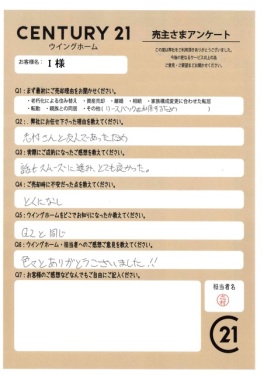 CENTURY 21
ウイングホーム
売主さまアンケート
この度は弊社をご利用頂きありがとうございました。
今後の更なるサービス向上の為
ご意見・ご感想をお聞かせください。
お客様名: I 様
Q1:まず最初にご売却理由をお聞かせください。
・老朽化による住み替え ・資産売却 ・離婚 ・相続 ・家族構成変更に合わせた転居
・転勤 ・親族との同居 ・その他(リースバックを利用するため)
Q2:弊社にお任せ下さった理由を教えてください。
さんと友人であったため
Q3:実際にご成約になったご感想を教えてください。
話もスムーズに進み、とても良かった。
Q4:ご売却時に不安だった点を教えてください。
とくになし
Q5:ウイングホームをどこでお知りになったか教えてください。
Q2と同じ
Q6:ウイングホーム・担当者へのご感想ご意見を教えてください。
色々とありがとうございました!!
Q7:お客様のご感想などなんでもご自由にご記入ください。
担当者名
C21